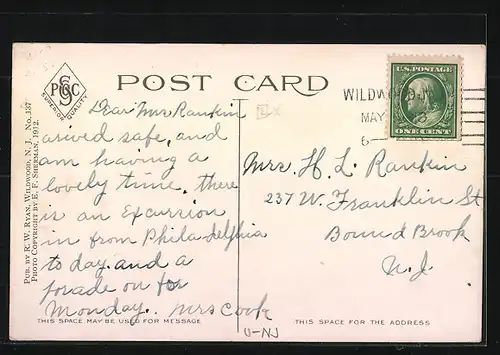 POST CARD
SPGC
SUPERIOR QUALITY
U.S. POSTAGE
ONE CENT
WILDWOOD, N.J.
MAY
6-
PUB. BY R. W. RYAN, WILDWOOD, N. J., No. 137
PHOTO COPYRIGHT BY E. F. SHERMAN, 1912.
Dear Mrs Rankin
arived safe, and
am having a
lovely time. there
is an Excursion
in from Philadelphia
to day. and a
parade on for
Monday. Mrs Cook
THIS SPACE MAY BE USED FOR MESSAGE
Mrs. H. L. Rankin
237 W. Franklin St
Bound Brook
N. J.
THIS SPACE FOR THE ADDRESS
U-NJ